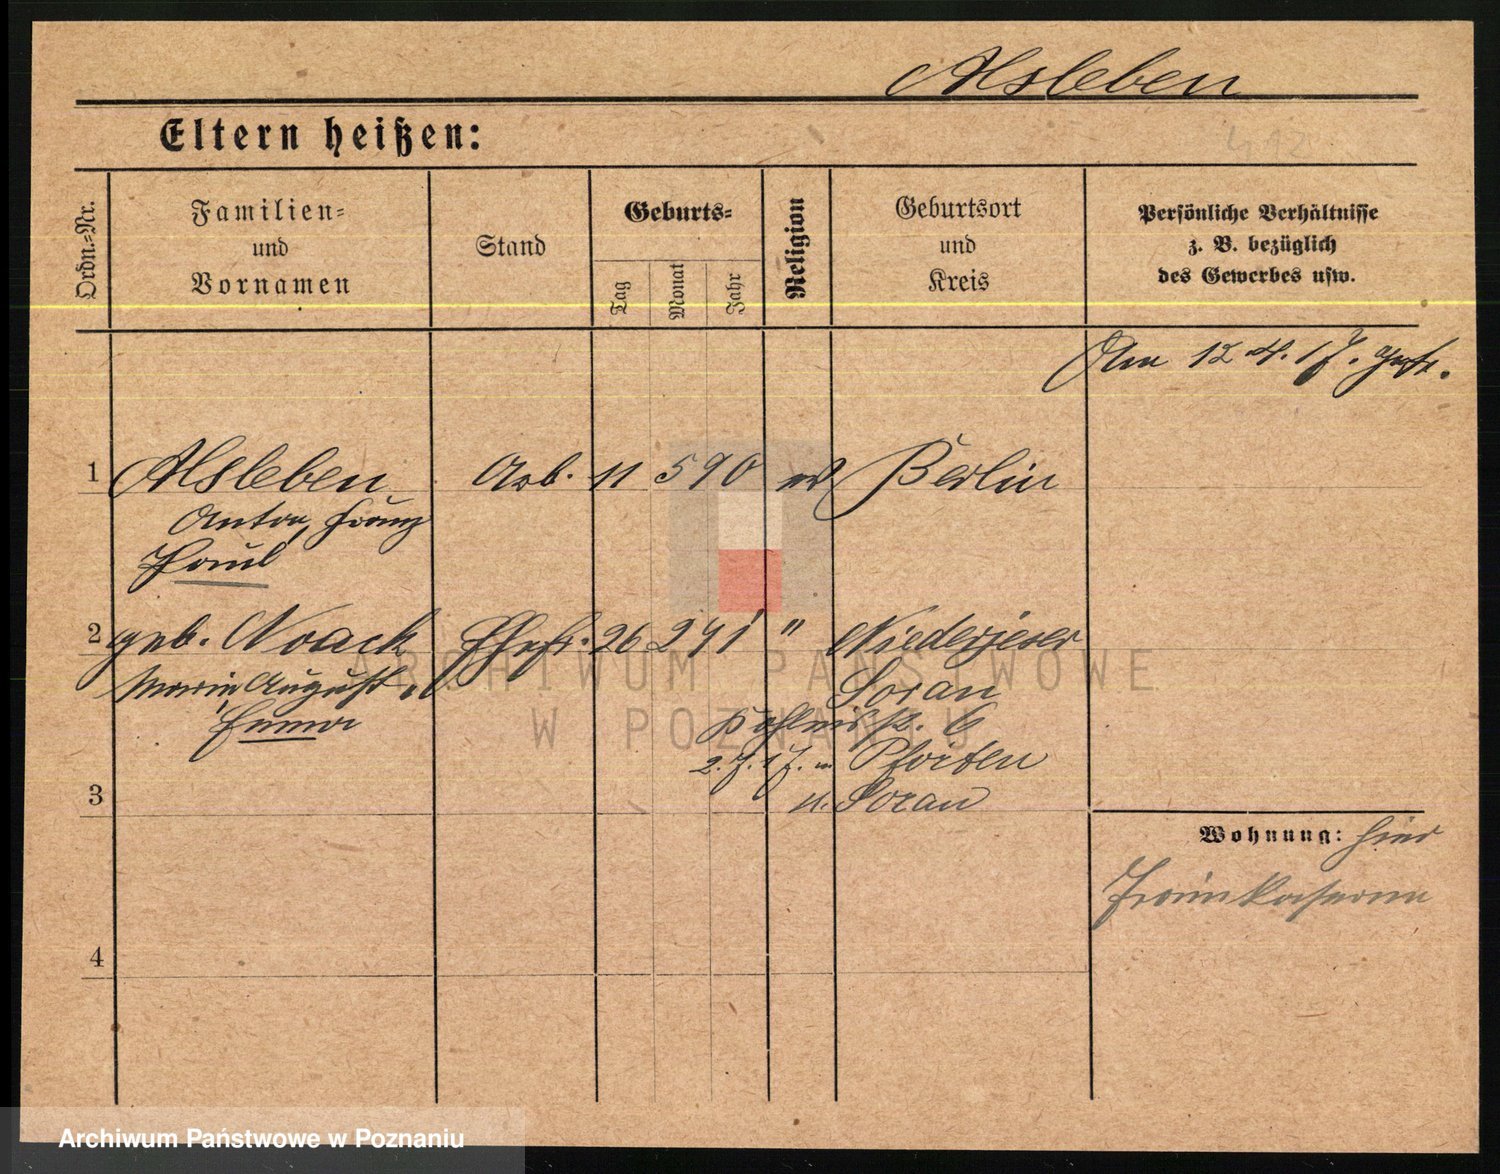 Alsleben
Eltern heißen:
412
Ordn.=Nr.
Familien=
und
Vornamen
Stand
Geburts=
Tag
Monat
Jahr
Religion
Geburtsort
und
Kreis
Persönliche Verhältnisse
z. B. bezüglich
des Gewerbes usw.
Am 12.4.17.
1 Alsleben Arb. 11 5 90 Berlin
Anton, Franz
Paul
2 geb. Noack Ehefr. 26 2 91 " Niederjeser
Marie, August
Emma
Soran
6
2.7.17. Pförten
u. Soran
3
Wohnung: hier
4
ARCHIWUM PAŃSTWOWE
W POZNANIU
Archiwum Państwowe w Poznaniu